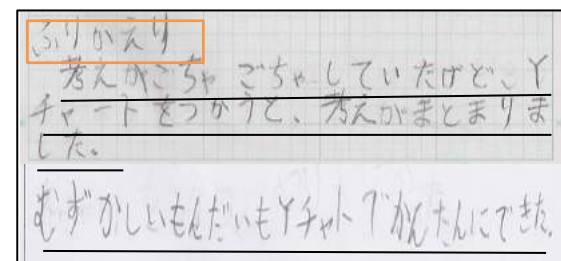 ふりかえり
考えがごちゃごちゃしていたけど、Y
チャートをつかうと、考えがまとまりま
した。
むずかしいもんだいもYチャートでかんたんにできた。